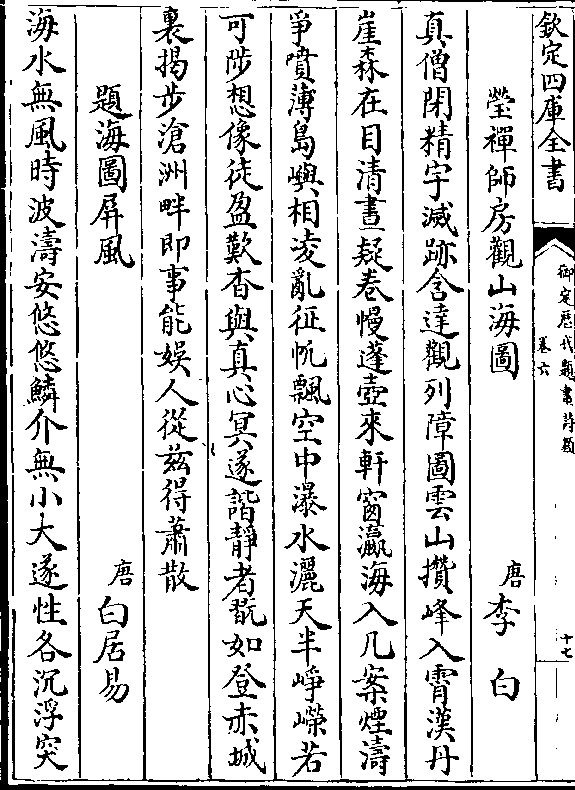 欽定四庫全書
御定歷代題畫詩類
卷六
十七
瑩禪師房觀山海圖
唐 李白
真僧閉精宇滅跡含達觀列障圖雲山攢峰入霄漢丹
崖森在目清晝疑卷幔蓬壺來軒窗瀛海入几案煙濤
爭噴薄島嶼相凌亂征帆飄空中瀑水灑天半崢嶸若
可陟想像徒盈歎杳與真心冥遂諧靜者翫如登赤城
裏揭步滄洲畔即事能娛人從茲得蕭散
題海圖屏風
唐 白居易
海水無風時波濤安悠悠鱗介無小大遂性各沉浮突